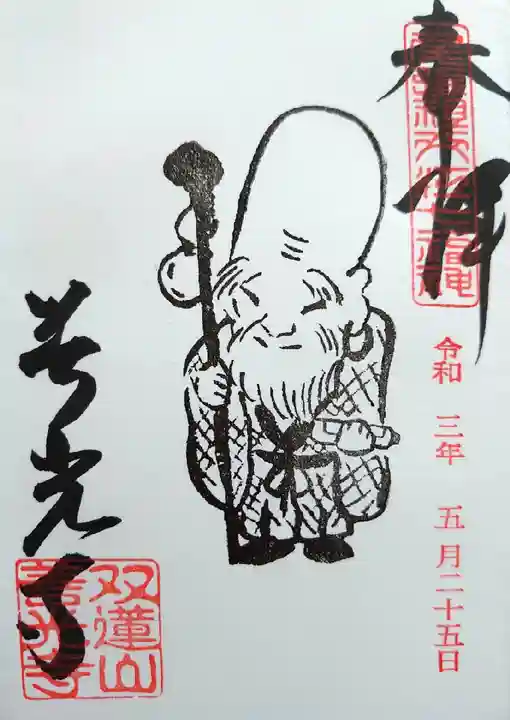 奉拝
令和 三年 五月二十五日
善光寺
双蓮山
善光寺